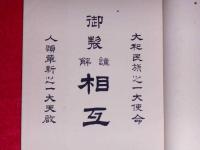 大和民族之一大使命
御製
謹解
相互
人類革新之一大天啟